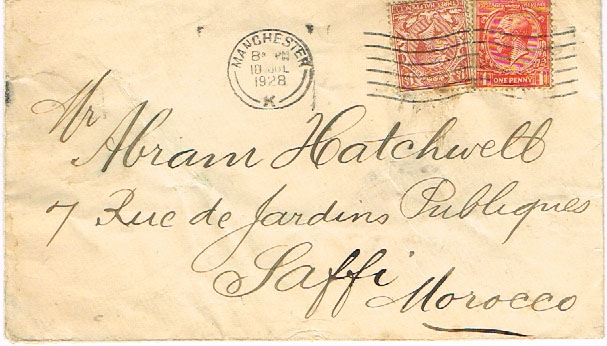 MANCHESTER
8 PM
10 JUL
1928
K
ONE PENNY
Mr
Abram Hatchwell
7 Rue de Jardins Publiques
Saffi
Morocco